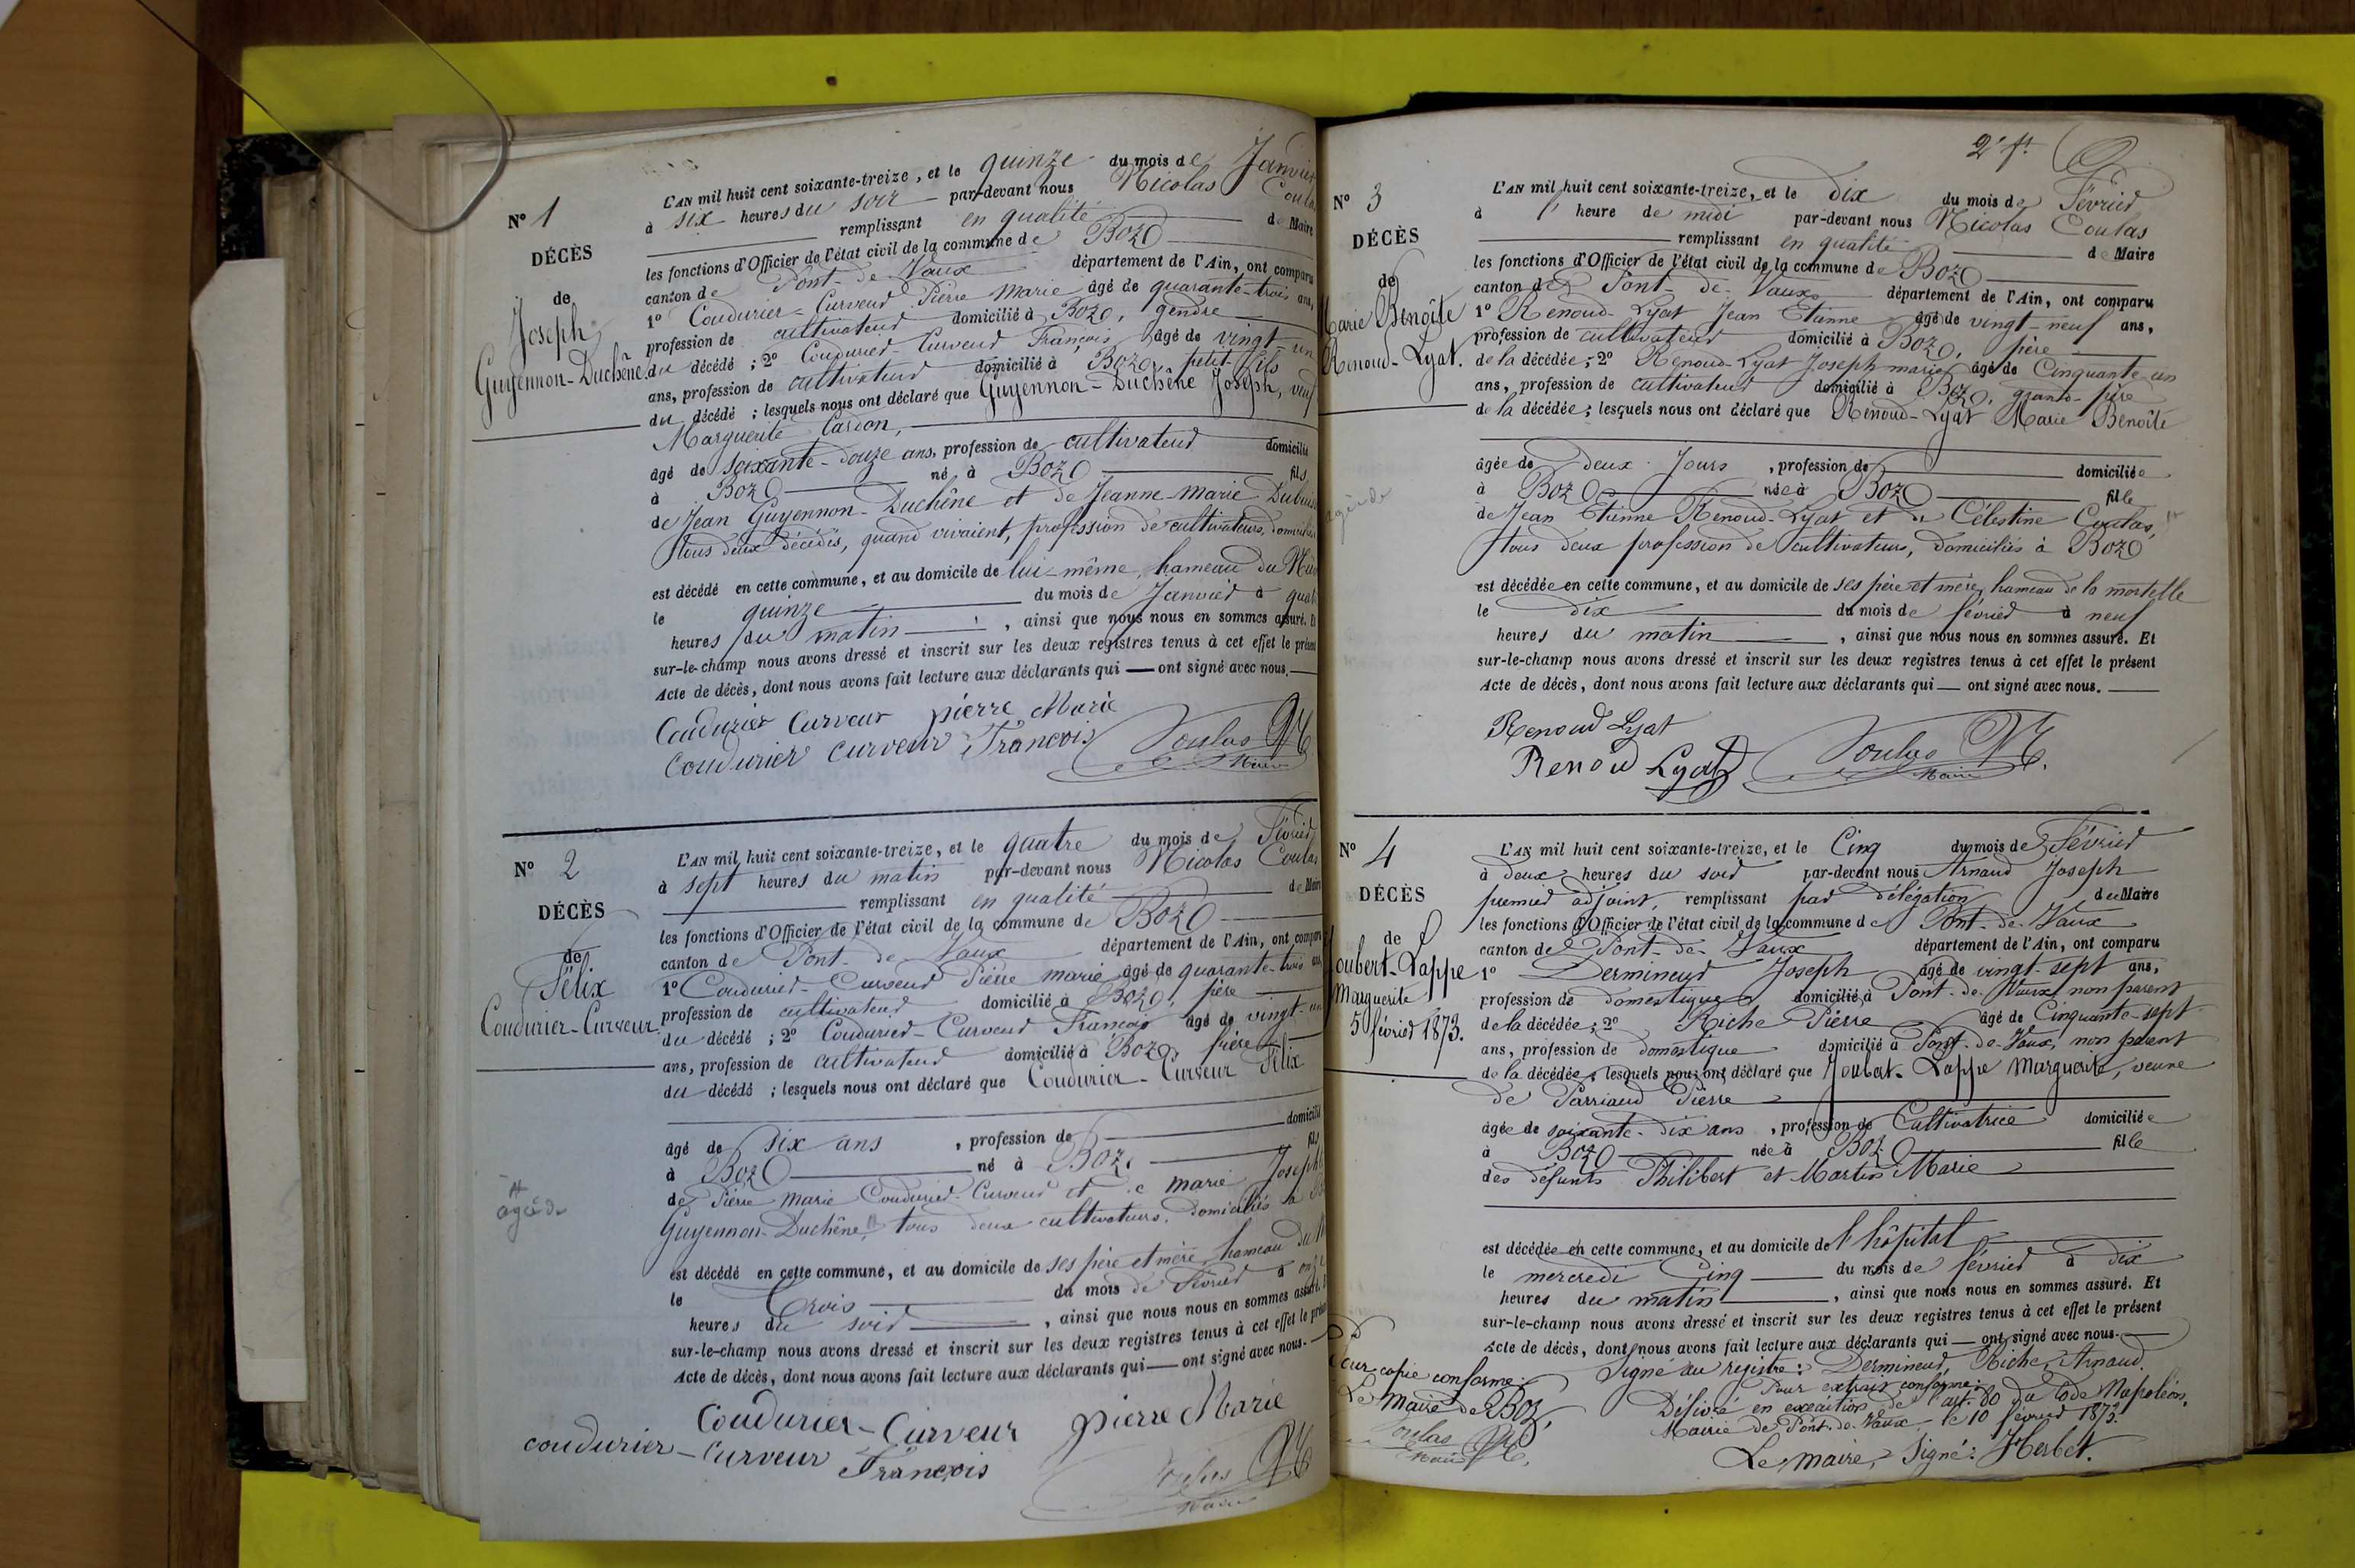 N° 1
DÉCÈS
de
Joseph
Guyennon-Duchêne
L'AN mil huit cent soixante-treize, et le quinze du mois de Janvier
à six heures du soir par-devant nous Nicolas Coulas
remplissant en qualité de Maire
les fonctions d'Officier de l'état civil de la commune de Boz
canton de Pont-de-Vaux département de l'Ain, ont comparu
1° Coudurier-Curveur Pierre Marie âgé de quarante-trois ans,
profession de cultivateur domicilié à Boz, gendre
du décédé ; 2° Coudurier-Curveur François âgé de vingt-un
ans, profession de cultivateur domicilié à Boz, petit-fils
du décédé ; lesquels nous ont déclaré que Guyennon-Duchêne Joseph, veuf
Marguerite Cardon,
âgé de soixante-douze ans, profession de cultivateur domicilié
à Boz né à Boz fils
de Jean Guyennon-Duchêne et de Jeanne-Marie
tous deux décédés, quand vivaient, profession de cultivateurs, domiciliés
est décédé en cette commune, et au domicile de lui-même, hameau du
le quinze du mois de Janvier à
heures du matin, ainsi que nous nous en sommes assuré. Et
sur-le-champ nous avons dressé et inscrit sur les deux registres tenus à cet effet le présent
Acte de décès, dont nous avons fait lecture aux déclarants qui — ont signé avec nous.
Coudurier Curveur pierre Marie
Coudurier Curveur François Coulas
Maire
N° 2
DÉCÈS
de
Félix
Coudurier-Curveur
L'AN mil huit cent soixante-treize, et le quatre du mois de Février
à sept heures du matin par-devant nous Nicolas Coulas
remplissant en qualité de Maire
les fonctions d'Officier de l'état civil de la commune de Boz
canton de Pont-de-Vaux département de l'Ain, ont comparu
1° Coudurier-Curveur Pierre marie âgé de quarante-trois ans
profession de cultivateur domicilié à Boz, père
du décédé ; 2° Coudurier-Curveur François âgé de vingt-un
ans, profession de cultivateur domicilié à Boz, frère
du décédé ; lesquels nous ont déclaré que Coudurier-Curveur Félix
âgé de six ans, profession de domicilié
à Boz né à Boz fils
de Pierre Marie Coudurier-Curveur et de marie Joseph
Guyennon-Duchêne, tous deux cultivateurs, domiciliés à
âgé de
est décédé en cette commune, et au domicile de ses père et mère, hameau du
le Trois du mois de Février à onze
heures du soir, ainsi que nous nous en sommes assuré.
sur-le-champ nous avons dressé et inscrit sur les deux registres tenus à cet effet le présent
Acte de décès, dont nous avons fait lecture aux déclarants qui — ont signé avec nous.
Coudurier-Curveur pierre Marie
coudurier-Curveur François
Coulas
Maire
2e ft
N° 3
DÉCÈS
de
Marie Benoîte
Renoud-Lyat.
L'AN mil huit cent soixante-treize, et le dix du mois de Février
à l' heure de midi par-devant nous Nicolas Coulas
remplissant en qualité de Maire
les fonctions d'Officier de l'état civil de la commune de Boz
canton de Pont-de-Vaux département de l'Ain, ont comparu
1° Renoud-Lyat Jean Etienne âgé de vingt-neuf ans,
profession de cultivateur domicilié à Boz, père
de la décédée ; 2° Renoud-Lyat Joseph marie âgé de Cinquante un
ans, profession de cultivateur domicilié à Boz, grand-père
de la décédée ; lesquels nous ont déclaré que Renoud-Lyat Marie Benoîte
âgée de deux Jours, profession de domiciliée
à Boz née à Boz fille
de Jean Etienne Renoud-Lyat et de Célestine Coulas,
tous deux profession de cultivateurs, domiciliés à Boz
est décédée en cette commune, et au domicile de ses père et mère, hameau de la mortelle
le dix du mois de février à neuf
heures du matin, ainsi que nous nous en sommes assuré. Et
sur-le-champ nous avons dressé et inscrit sur les deux registres tenus à cet effet le présent
Acte de décès, dont nous avons fait lecture aux déclarants qui — ont signé avec nous.
Renoud Lyat
Renoud Lyat Coulas
Maire
N° 4
DÉCÈS
de
Joubert-Lappe
Marguerite
5 février 1873.
L'AN mil huit cent soixante-treize, et le Cinq du mois de Février
à deux heures du soir par-devant nous Arnaud Joseph
premier adjoint, remplissant par délégation du Maire
les fonctions d'Officier de l'état civil de la commune de Pont-de-Vaux
canton de Pont-de-Vaux département de l'Ain, ont comparu
1° Dermineur Joseph âgé de vingt-sept ans,
profession de domestique domicilié à Pont-de-Vaux, non parent
de la décédée ; 2° Riche Pierre âgé de Cinquante-sept
ans, profession de domestique domicilié à Pont-de-Vaux, non parent
de la décédée ; lesquels nous ont déclaré que Joubert-Lappe Marguerite, veuve
de Parriaud Pierre
âgée de soixante-dix ans, profession de Cultivatrice domiciliée
à Boz née à Boz fille
des défunts Philibert et Martin Marie
est décédée en cette commune, et au domicile de l'hôpital
le mercredi Cinq du mois de février à dix
heures du matin, ainsi que nous nous en sommes assuré. Et
sur-le-champ nous avons dressé et inscrit sur les deux registres tenus à cet effet le présent
Acte de décès, dont nous avons fait lecture aux déclarants qui — ont signé avec nous.
Signé au registre : Dermineur, Riche, Arnaud.
Pour extrait conforme :
Délivré en exécution de l'art. 80 du Code Napoléon.
Mairie de Pont-de-Vaux le 10 février 1873.
Le maire, Signé : Herbet.
Pour copie conforme :
Le Maire de Boz,
Coulas
Maire